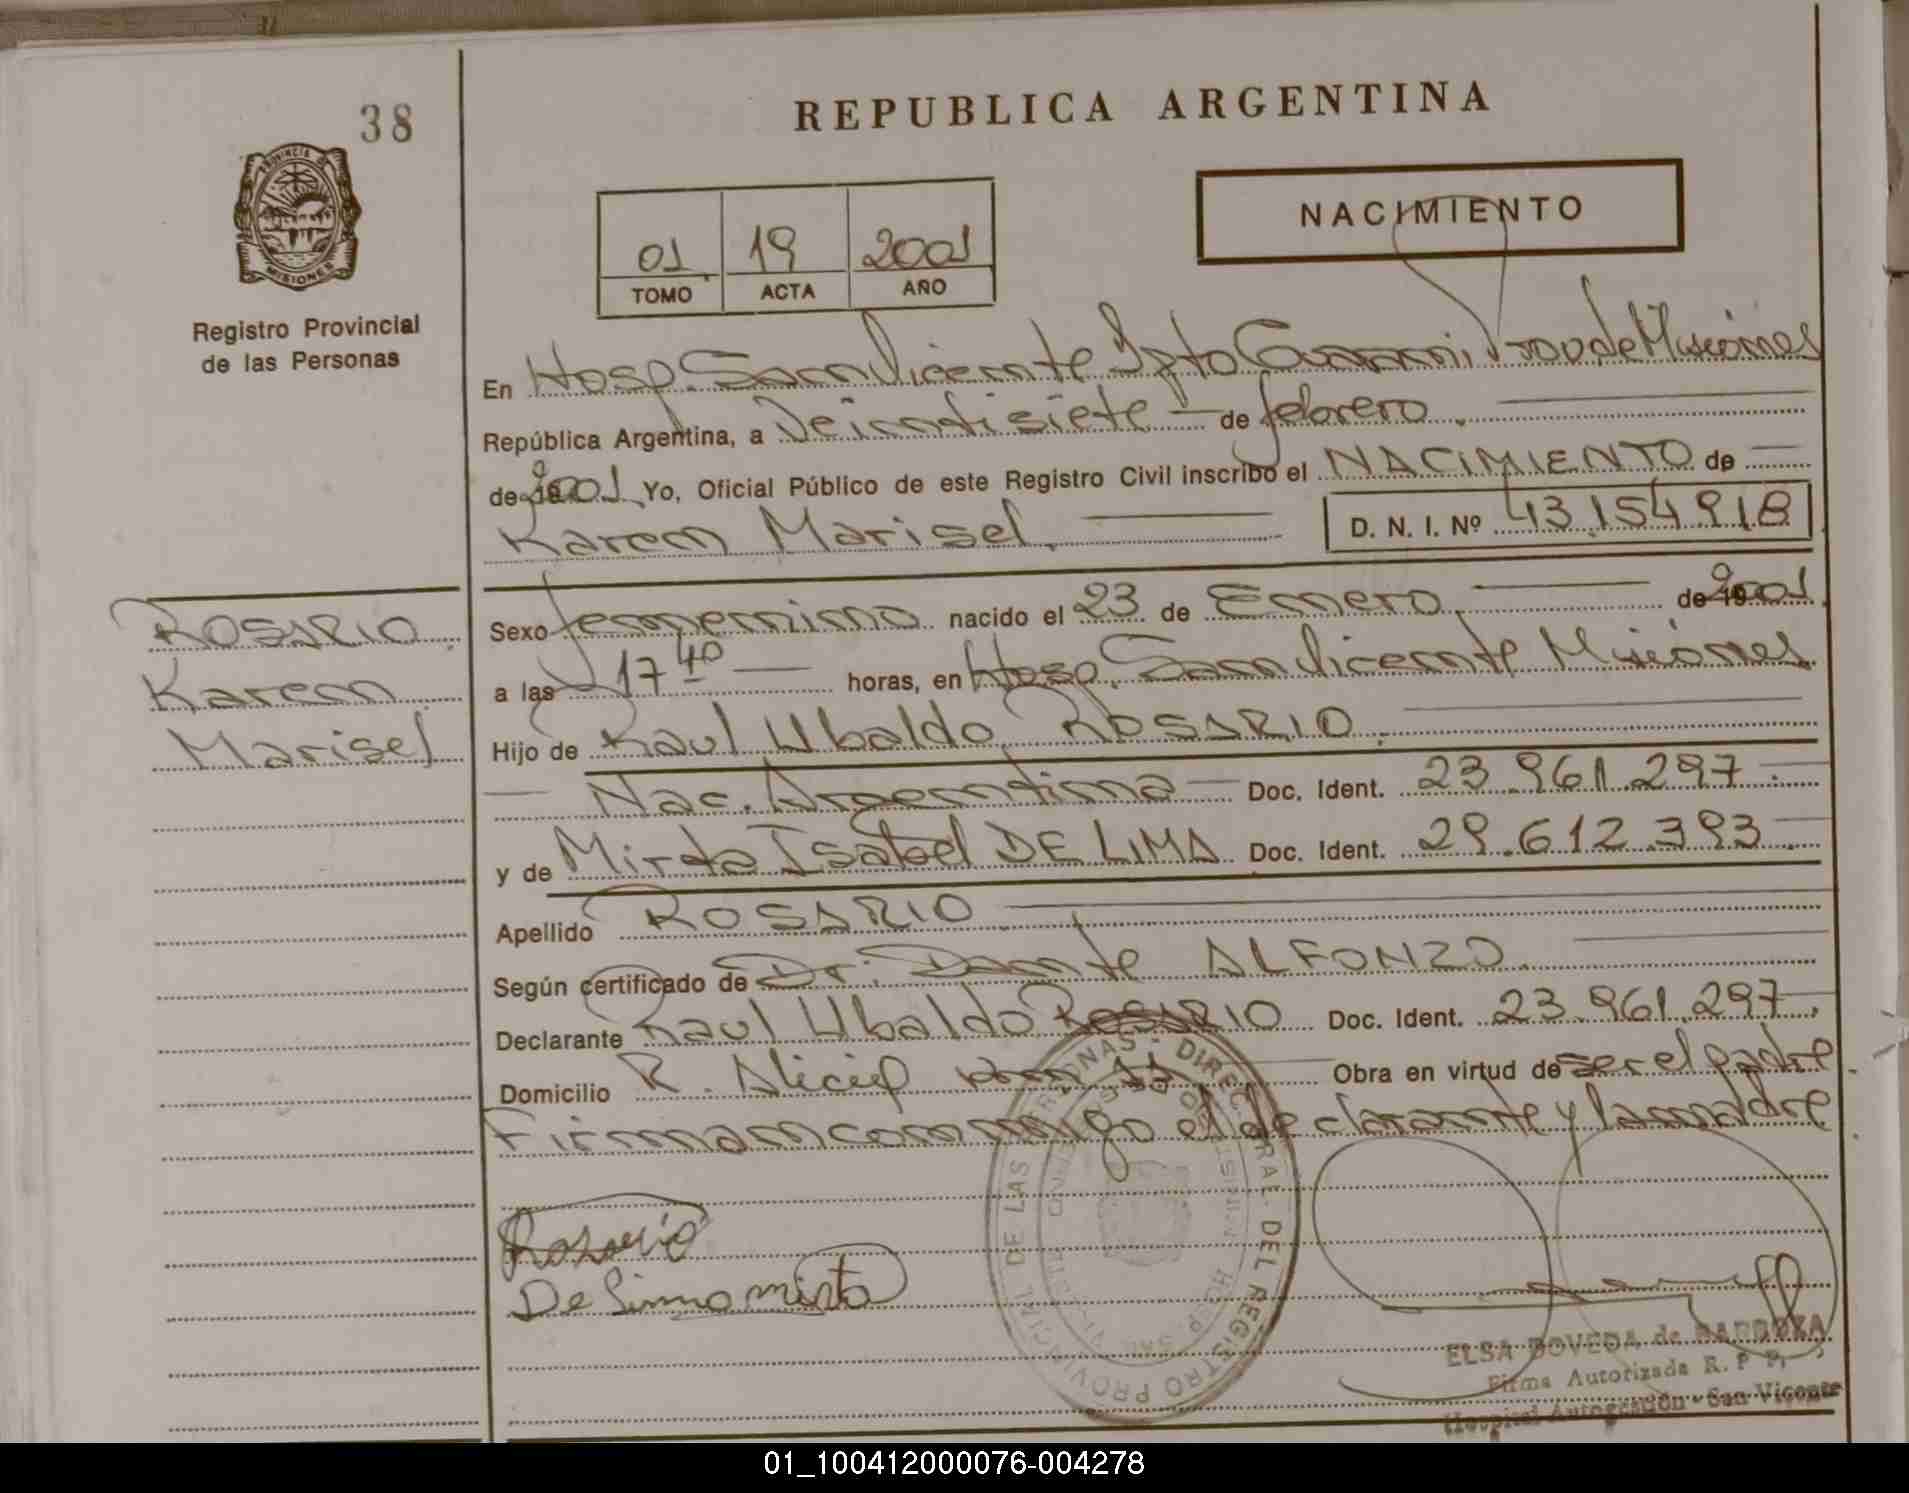 38
REPUBLICA ARGENTINA
PROVINCIA DE
MISIONES
Registro Provincial
de las Personas
01 19 2001
TOMO ACTA AÑO
NACIMIENTO
En Hosp. San Vicente Dpto Guarani, Prov de Misiones
República Argentina, a Veintisiete de febrero
de 2001 Yo, Oficial Público de este Registro Civil inscribo el NACIMIENTO de
Karen Marisel. D. N. I. Nº 43.154.918
ROSARIO
Karen
Marisel
Sexo femenino nacido el 23 de Enero de 2001
a las 17 40 horas, en Hosp. San Vicente Misiones
Hijo de Raul Ubaldo ROSARIO
Nac. Argentina Doc. Ident. 23.961.297
y de Mirta Isabel DE LIMA Doc. Ident. 29.612.393
Apellido ROSARIO
Según certificado de Dr. Dante ALFONZO
Declarante Raul Ubaldo ROSARIO Doc. Ident. 23.961.297
Domicilio R. Alicia Obra en virtud de ser el padre
Firman conmigo el declarante y la madre
Rosario
De Lima mirta
DIREC RAL DEL REGISTRO PROVINCIAL DE LAS PERSONAS
ELSA BOVEDA de BARBOZA
Firma Autorizada R. P. P.
Hospital Autogestión - San Vicente
01_100412000076-004278